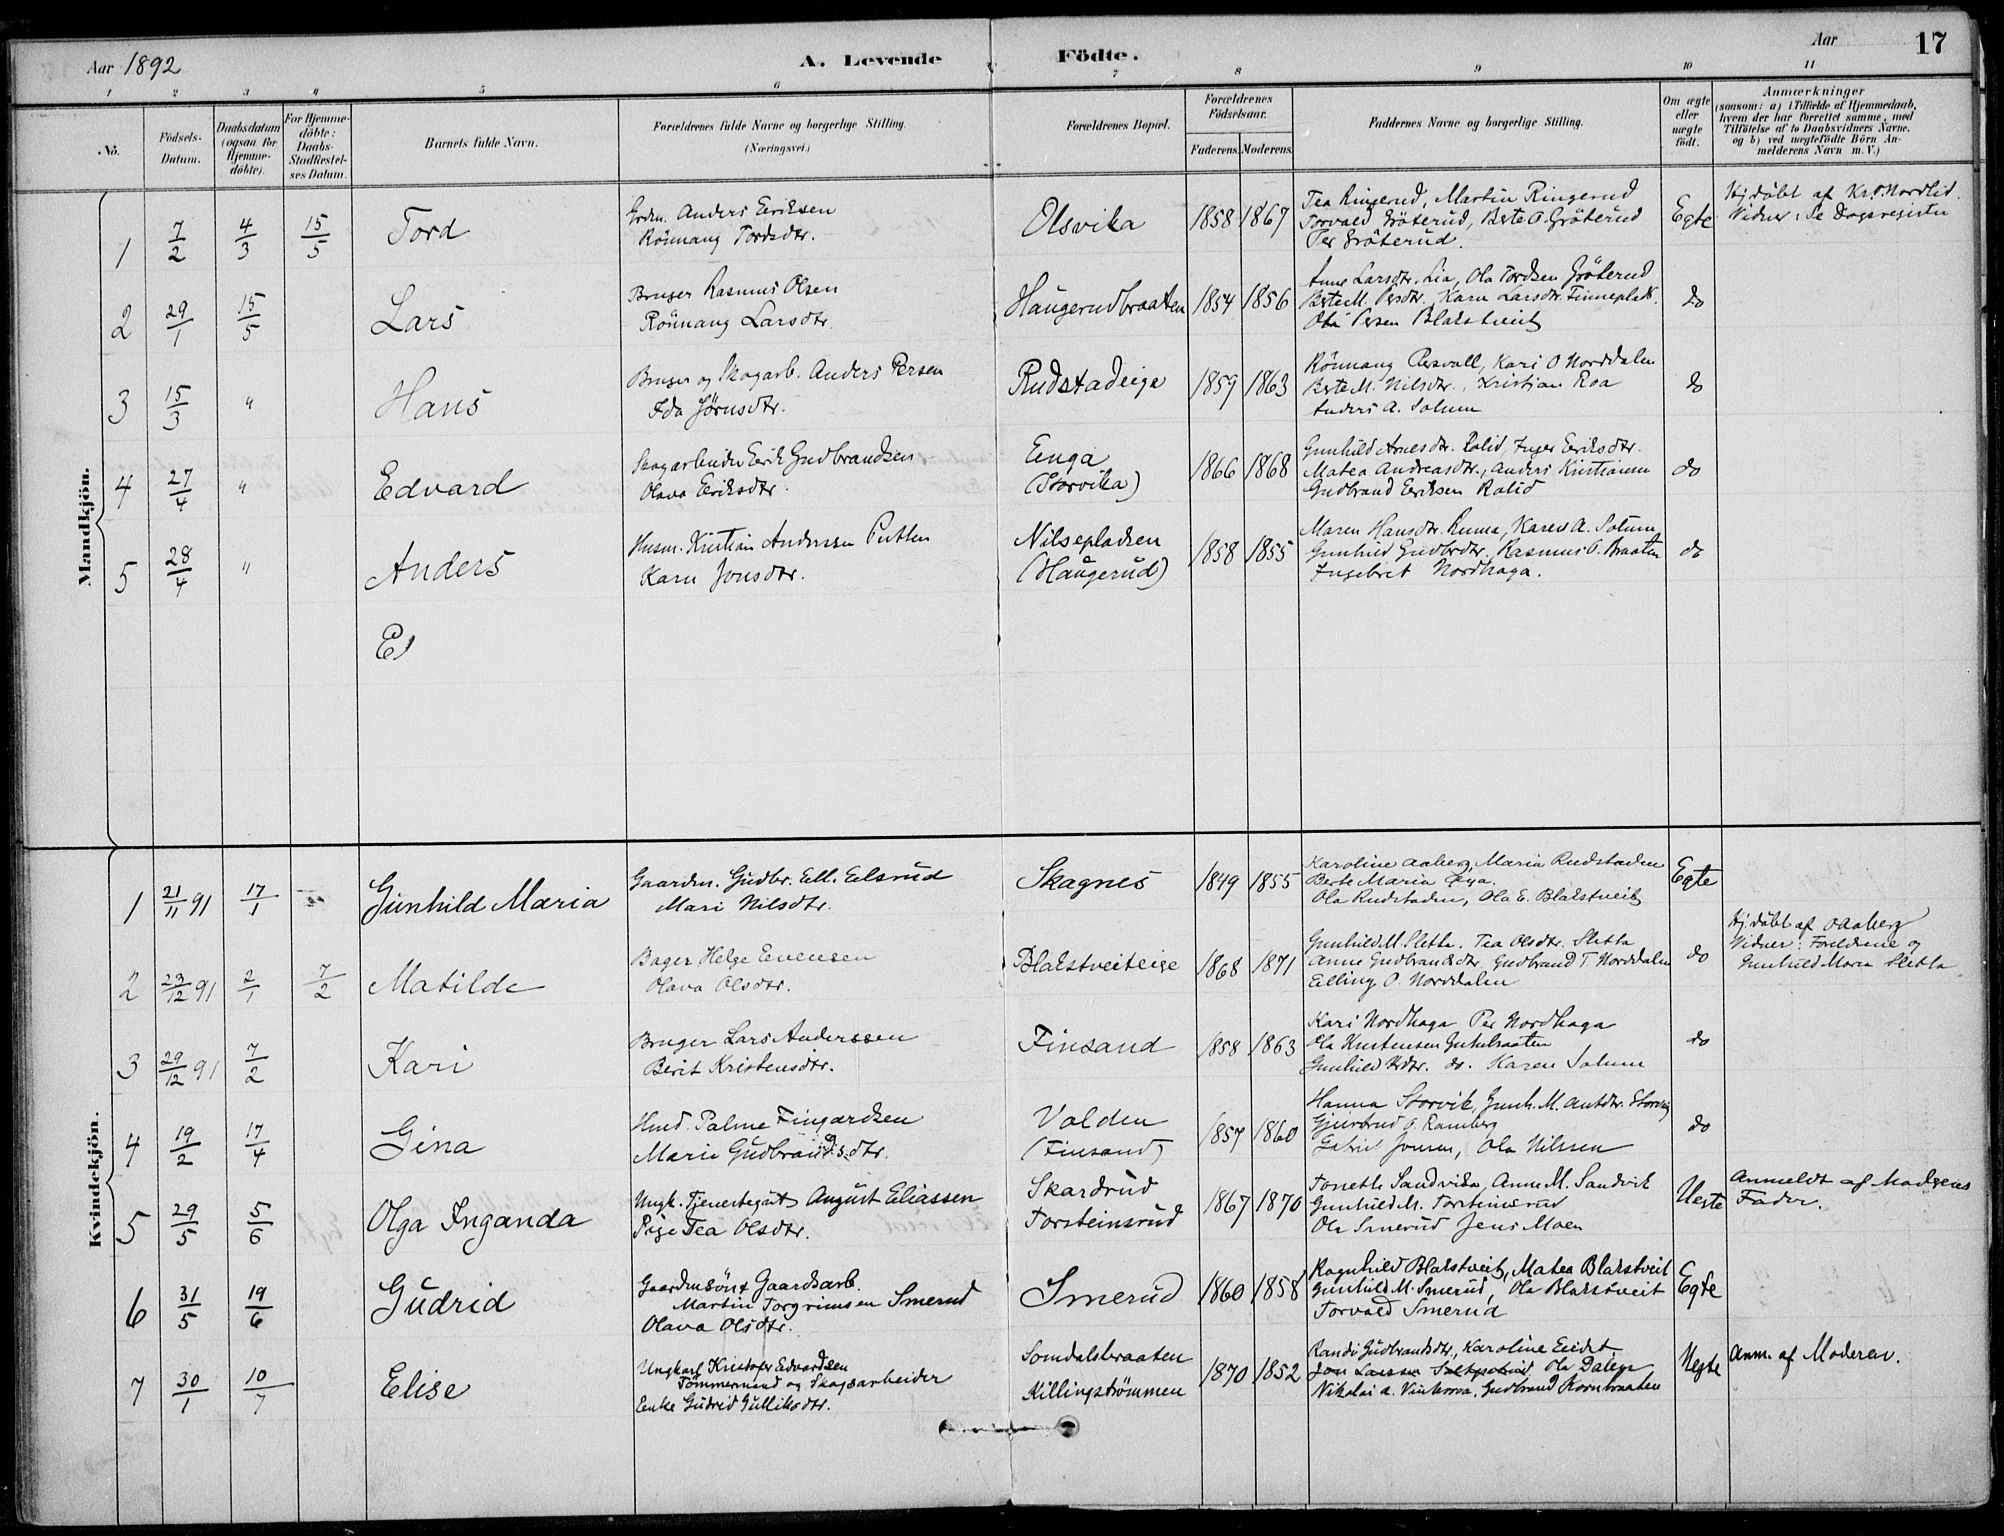 Aar 1892
A. Levende Födte.
Aar
17
1 2 3 4 5 6 7 8 9 10 11
No.
Födsels-Datum.
Daabsdatum (ogsaa for Hjemmedöbte).
For Hjemmedöbte: Daabs-Stadfæstelses Datum.
Barnets fulde Navn.
Forældrenes fulde Navne og borgerlige Stilling. (Næringsvei.)
Forældrenes Bopæl.
Forældrenes Födselsaar.
Faderens. Moderens.
Faddernes Navne og borgerlige Stilling.
Om ægte eller uægte födt.
Anmærkninger
(saasom: a) i Tilfælde af Hjemmedaab, hvem der har forrettet samme, med Tilföielse af to Daabsvidners Navne, og b) ved uægtefödte Börn Anmelderens Navn m. V.)
Mandkjön.
1 7/2 4/3 15/5 Tord
Grdm. Anders Eeriksen
Rönnaug Tordsdtr.
Olsvika 1858 1867
Tea Ringerud, Martin Ringerud
Torvald Gröterud, Berte O. Gröterud
Per Gröterud.
Egte
Hj.döbt af Kr. Nordlid.
Vidner: Se Dagsregister
2 29/1 15/5 Lars
Bruger Rasmus Olsen
Rönnaug Larsdtr.
Haugerudbraaten 1854 1856
Anne Larsdtr. Lia, Ola Tordsen Gröterud
Berte M. Persdtr., Karn Larsdtr. Finneplads.
Ola Persen Blakstveit
do
3 15/3 " Hans
Bruger og Skogarb. Anders Persen
Ida Jørnsdtr.
Rudstadeige 1859 1863
Rönnaug Persvoll, Kari O Norddalen
Berte M. Nilsdtr., Kristian Roa
Anders A. Solum
do
4 27/4 " Edvard
Skogarbeider Eerik Gudbrandsen
Olava Eeriksdtr.
Enga
(Storvika) 1866 1868
Gunhild Arnesdtr. Rolid, Inger Eeriksdtr.
Matea Andreasdtr., Anders Kristiansen
Gudbrand Eeriksen Rolid
do
5 28/4 " Anders
Husm. Kristian Anderssen Putten
Karn Jonsdtr.
Nilsepladsen
(Haugerud) 1858 1855
Maren Hansdtr. Ruma, Karen A. Solum
Gunhild Gudbrdtr. Rasmus O. Braaten
Ingebret Nordhaga.
do
Kvindekjön.
1 21/11 91 17/1 Gunhild Maria
Gaardm. Gudbr. Ell. Eelsrud
Mari Nilsdtr.
Skagnes 1849 1855
Karoline Aaberg, Maria Rudstaden
Berte Maria Øya.
Ola Rudstaden, Ola E. Blakstveit
Egte
2 23/12 91 2/1 7/2 Matilde
Bager Helge Evensen
Olava Olsdtr.
Blakstveiteige 1868 1871
Gunhild M. Sletta. Tea Olsdtr. Sletta
Anne Gudbrandsdtr. Gudbrand T. Norddalen
Elling O. Norddalen
do
Hj.döbt af O Aaberg
Vidner: Foreldrene og
Gunhild Maria Sletta
3 29/12 91 7/2 Kari
Bruger Lars Anderssen
Berit Kristensdtr.
Finsand 1858 1863
Kari Nordhaga Per Nordhaga
Ola Kristensen
Gunhild Krdtr. do. Karen Solum
do
4 19/2 17/4 Gina
Hmd. Palme Fingardsen
Marie Gudbrandsdtr.
Volden
(Finsand) 1857 1860
Hanna Storvik, Gunh. M. Antdtr. Storvik
Gjertrud O. Ramberg
Gabriel Jonsen, Ola Nilssen
do
5 29/5 5/6 Olga Inganda
Ungk. Tjenestegut August Eliassen
Pige Tea Olsdtr.
Skardrud
Torsteinsrud 1867 1870
Toneth Sandvika, Anne M. Sandvik
Gunhild M. Torsteinsrud
Ola Smerud Jens Moen
Uegte
Anmeldt af Modgens
Fader.
6 31/5 19/6 Gudrid
Gaardmsön & Gaardsarb.
Martin Torgrimsen Smerud
Olava Olsdtr.
Smerud 1860 1858
Ragnhild Blakstveit, Matea Blakstveit
Gunhild M. Smerud, Ola Blakstveit
Torvald Smerud
Egte
7 30/1 10/7 Elise
Ungkarl Kristofer Edvardsen
Tömmermand og Skogsarbeider
Enke Gudrid Gulliksdtr.
Somdalsbraaten
Killingströmmen 1870 1852
Randi Gudbrandsdtr, Karoline Eidet
Jon Larssen Ola Dalen
Nikolai A. Gudbrand Kornbraaten
Uegte
Anm. af Moderen.